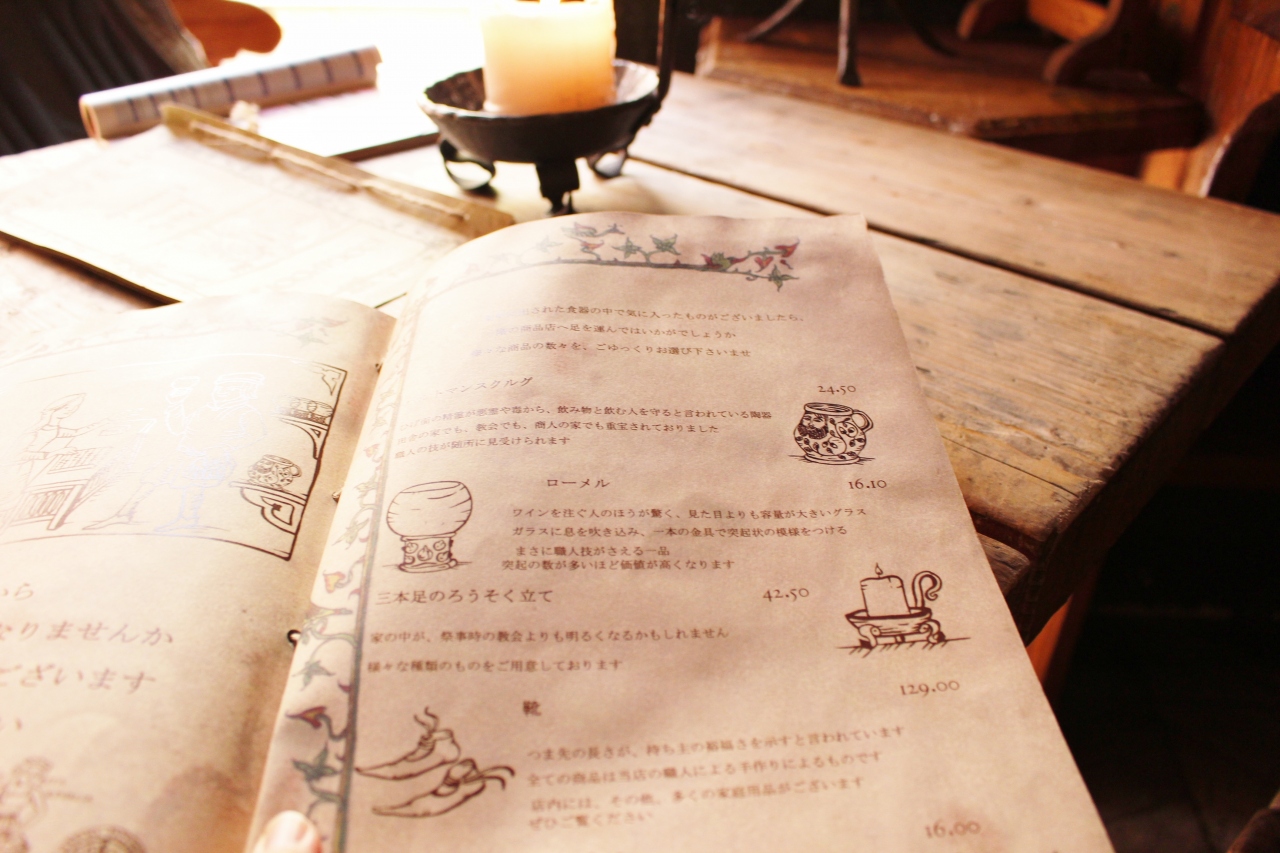 いら
なりませんか
ございます
い
された食器の中で気に入ったものがございましたら、
商品店へ足を運んではいかがでしょうか
商品の数々を、ごゆっくりお選び下さいませ
マンスクルグ
24.50
精霊が悪霊や毒から、飲み物と飲む人を守ると言われている陶器
の家でも、教会でも、商人の家でも重宝されておりました
職人の技が随所に見受けられます
ローメル
16.10
ワインを注ぐ人のほうが驚く、見た目よりも容量が大きいグラス
ガラスに息を吹き込み、一本の金具で突起状の模様をつける
まさに職人技がさえる一品
突起の数が多いほど価値が高くなります
三本足のろうそく立て
42.50
家の中が、祭事時の教会よりも明るくなるかもしれません
様々な種類のものをご用意しております
129.00
靴
つま先の長さが、持ち主の裕福さを示すと言われています
全ての商品は当店の職人による手作りによるものです
店内には、その他、多くの家庭用品がございます
ぜひご覧ください
16.00